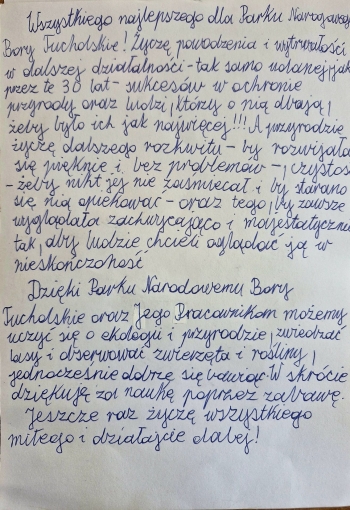 Wszystkiego najlepszego dla Parku Narodowego
Bory Tucholskie! Życzę powodzenia i wytrwałości
w dalszej działalności - tak samo udanej jak
przez te 30 lat - sukcesów w ochronie
przyrody oraz ludzi, którzy o nią dbają,
żeby było ich jak najwięcej!!! A przyrodzie
życzę dalszego rozkwitu - by rozwijała
się pięknie i bez problemów -, czystości
- żeby nikt jej nie zaśmiecał i by starano
się nią opiekować - oraz tego, by zawsze
wyglądała zachwycająco i majestatycznie
tak, aby ludzie chcieli oglądać ją w
nieskończoność
Dzięki Parku Narodowemu Bory
Tucholskie oraz Jego Pracownikom możemy
uczyć się o ekologii i przyrodzie, zwiedzać
lasy i obserwować zwierzęta i rośliny,
jednocześnie dobrze się bawiąc. W skrócie
dziękuję za naukę poprzez zabawę.
Jeszcze raz życzę wszystkiego
miłego i działajcie dalej!